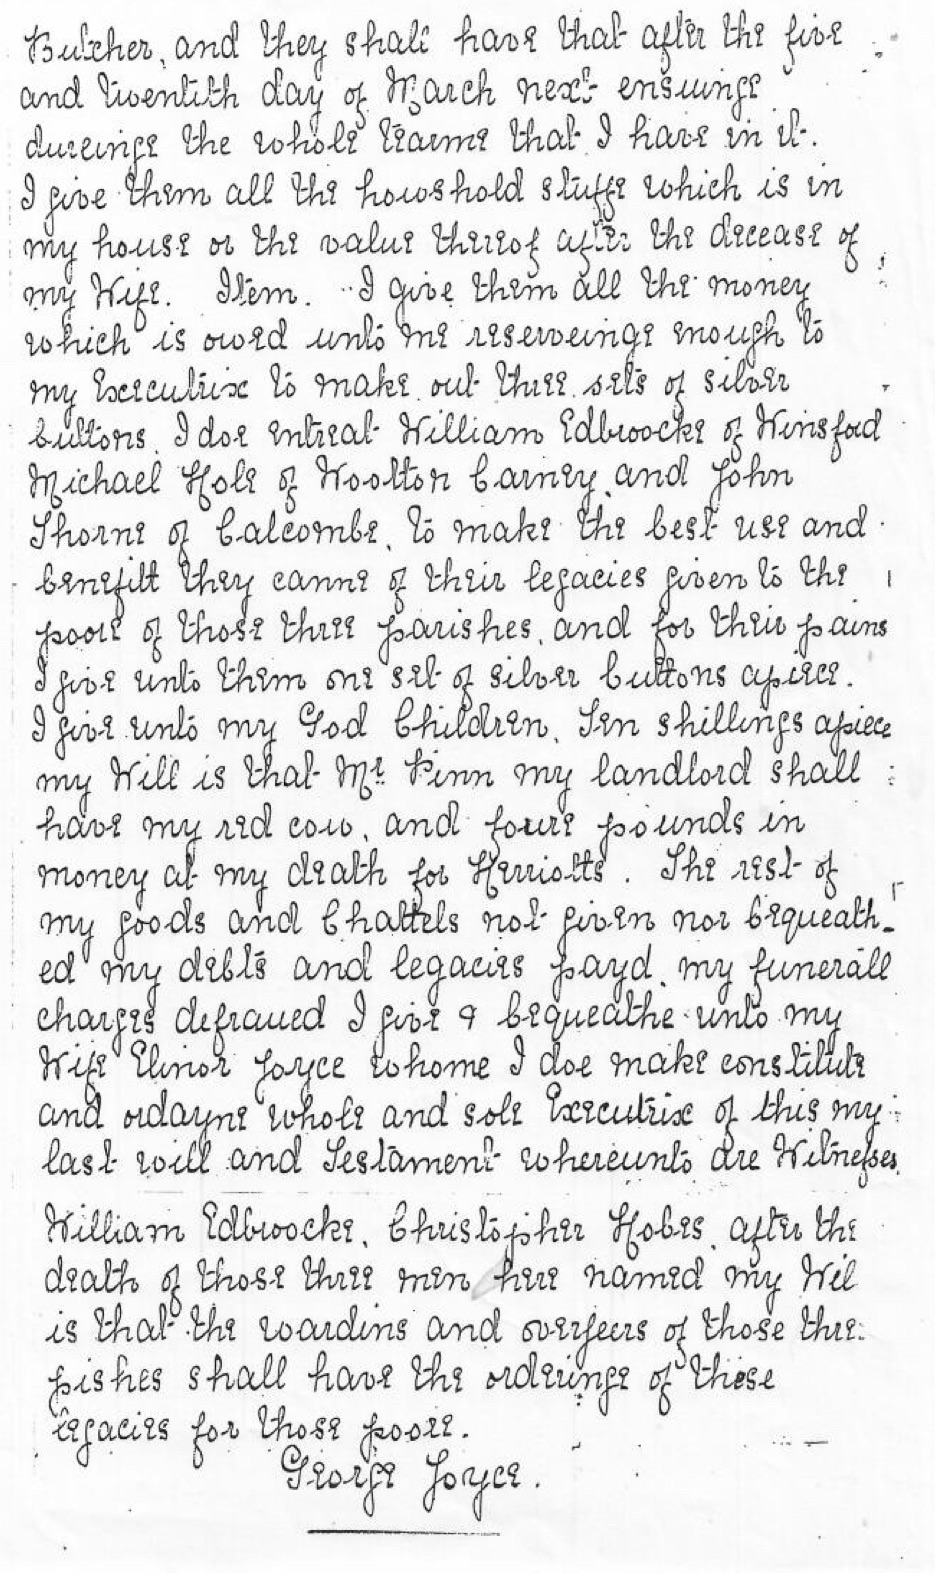 Butcher, and they shall have that after the five
and twentith day of March next ensuinge
dureinge the whole tearme that I have in it.
I give them all the howshold stuffe which is in
my house or the value thereof after the decease of
my Wife. Item. I give them all the money
which is owed unto me reserveinge enough to
my Executrix to make out three sets of silver
buttons. I doe entreat William Edbroocke of Winsford
Michael Hole of Wootton Carney, and John
Thorne of Calcombe, to make the best use and
benefitt they canne of their legacies given to the
poore of those three parishes, and for their pains
I give unto them one set of silver buttons apiece.
I give unto my God Children, Ten shillings apiece
my Will is that Mr. Pinn my landlord shall
have my red cow, and foure pounds in
money at my death for Herriotts. The rest of
my goods and Chattels not given nor bequeath-
ed my debts and legacies payd, my funerall
charges defraued I give & bequeathe unto my
Wife Elinor Joyce whome I doe make constitute
and ordayne whole and sole Executrix of this my
last will and Testament whereunto are Witnesses
William Edbroocke, Christopher Hobes, after the
death of those three men here named my Wil
is that the wardins and overseers of those thre
pishes shall have the orderinge of these
legacies for those poore.
George Joyce.